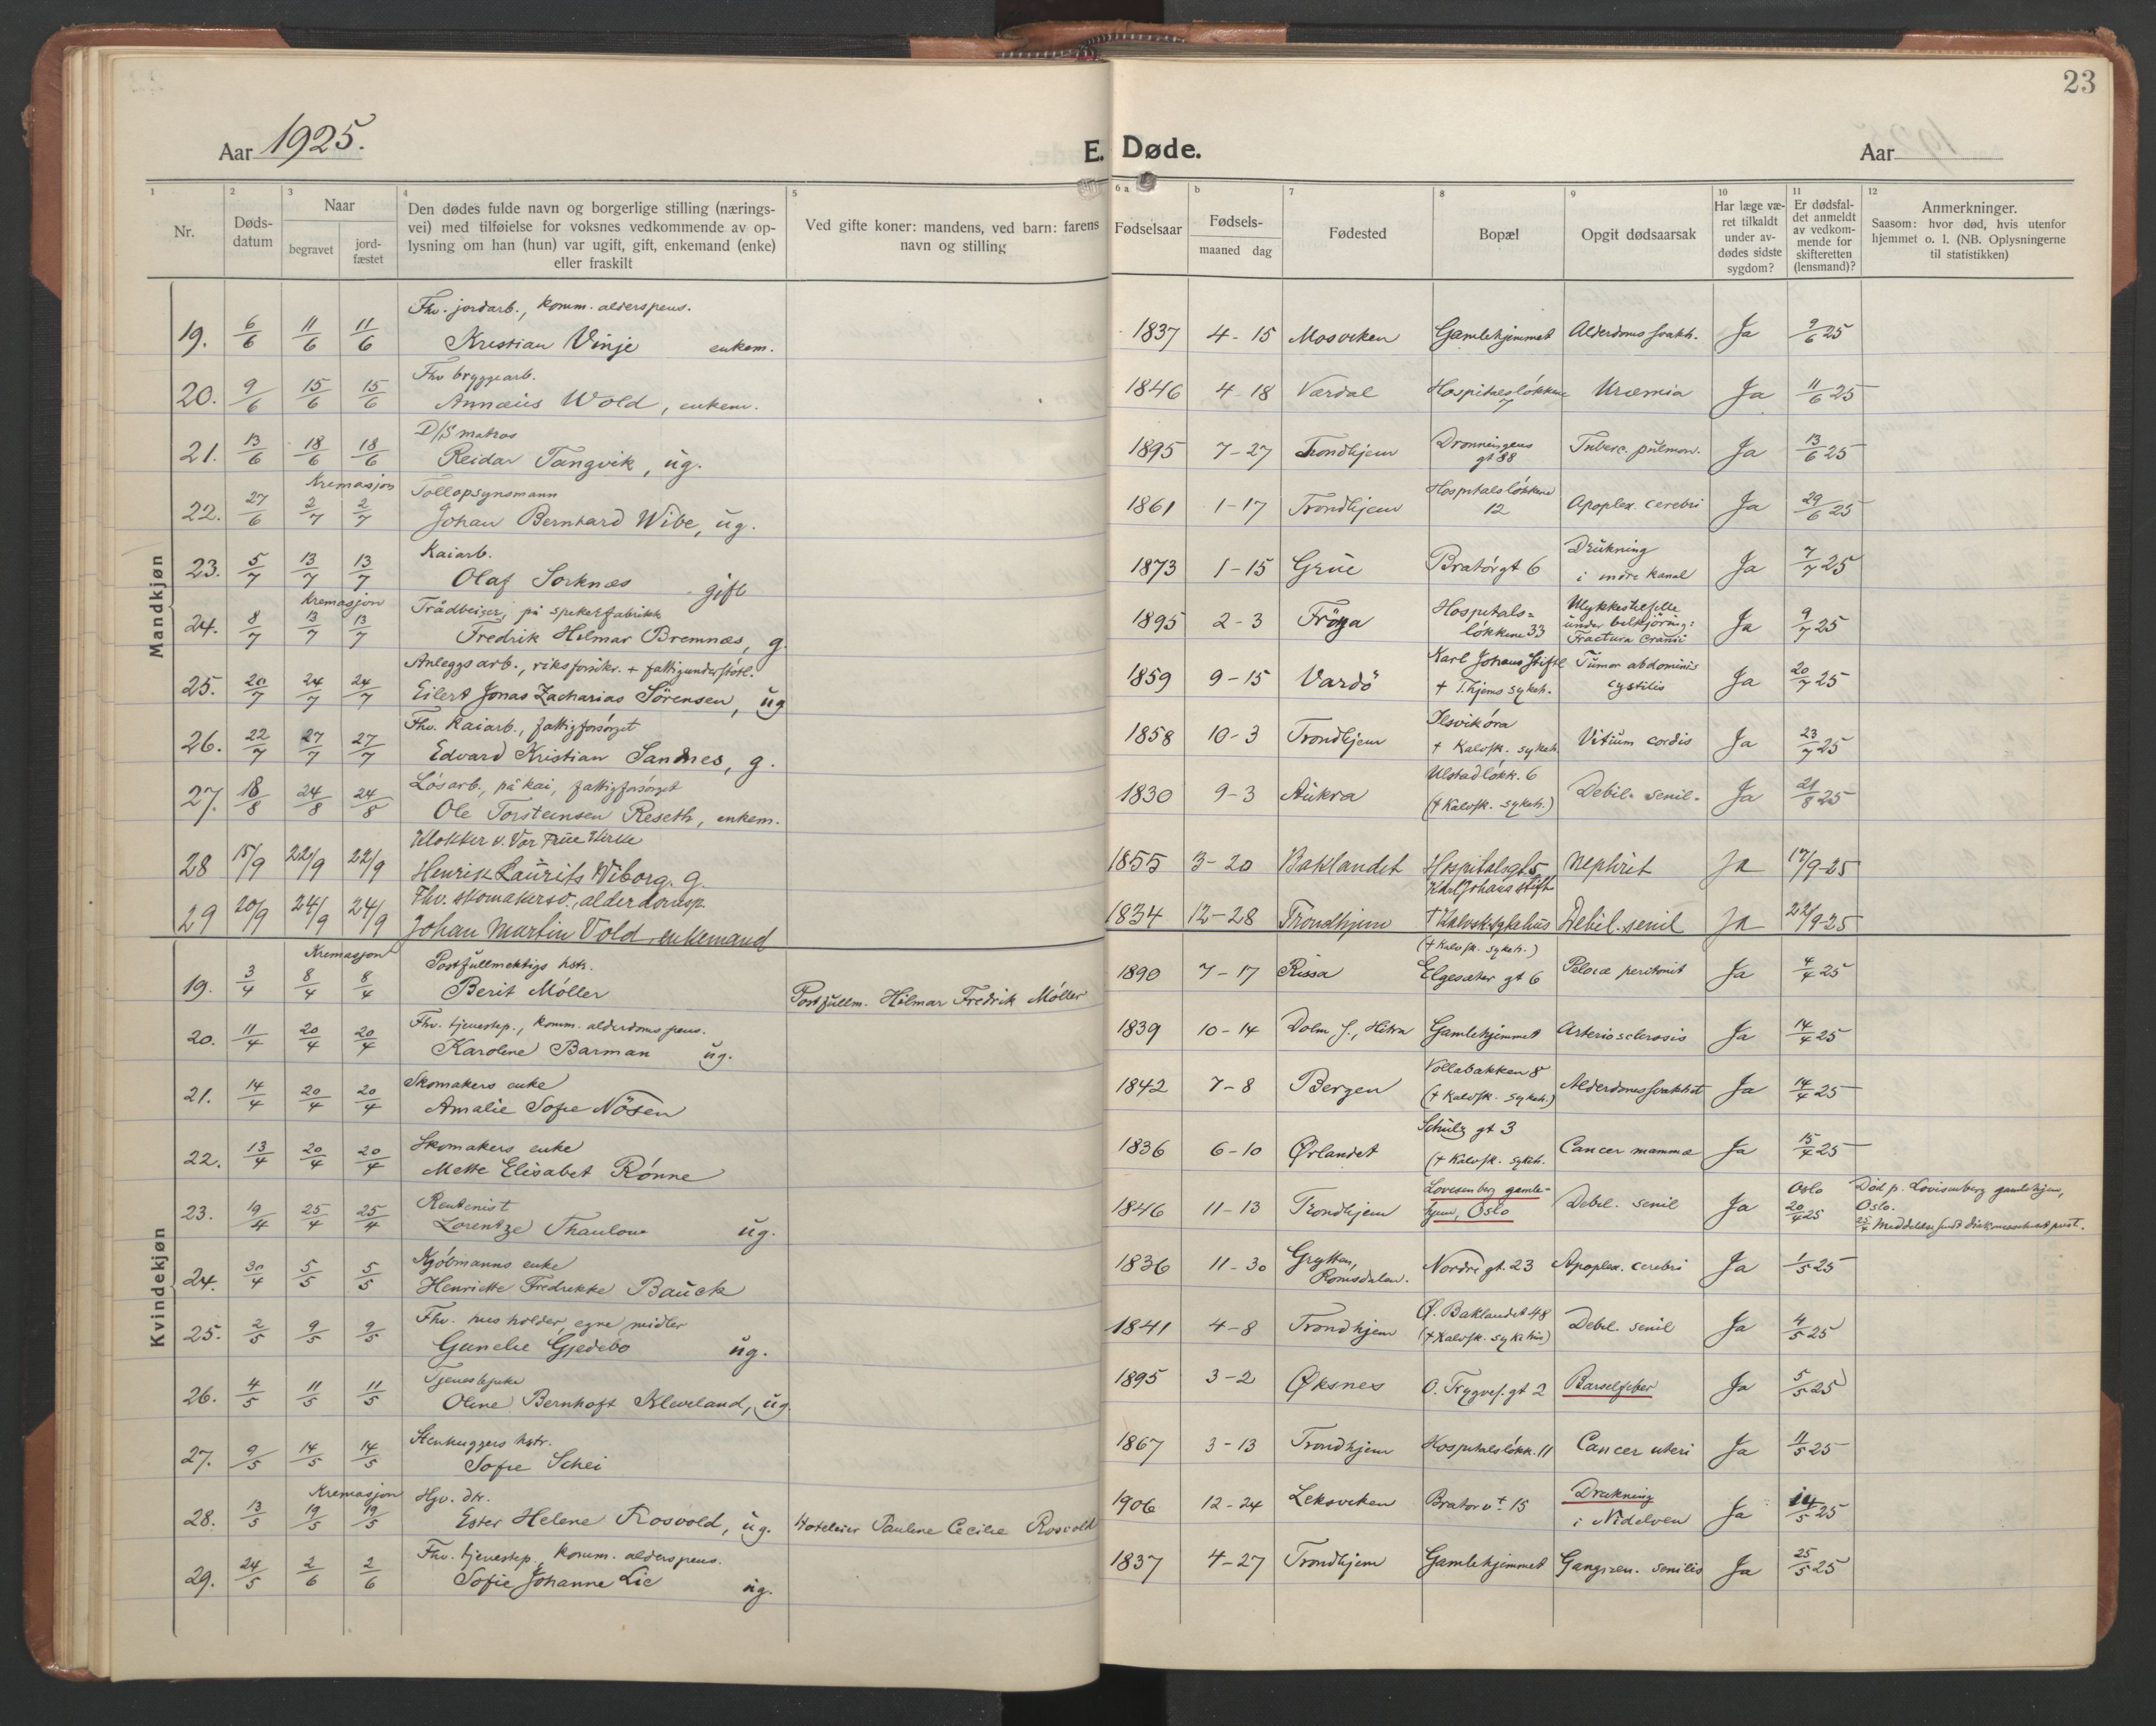 23
Aar 1925.
E. Døde.
Aar
1 2 3 4 5 6 a b 7 8 9 10 11 12
Nr.
Døds-
datum
Naar
begravet
jord-
fæstet
Den dødes fulde navn og borgerlige stilling (nærings-
vei) med tilføielse for voksnes vedkommende av op-
lysning om han (hun) var ugift, gift, enkemand (enke)
eller fraskilt
Ved gifte koner: mandens, ved barn: farens
navn og stilling
Fødselsaar
Fødsels-
maaned dag
Fødested
Bopæl
Opgit dødsaarsak
Har læge væ-
ret tilkaldt
under av-
dødes sidste
sygdom?
Er dødsfal-
det anmeldt
av vedkom-
mende for
skifteretten
(lensmand)?
Anmerkninger.
Saasom: hvor død, hvis utenfor
hjemmet o. l. (NB. Oplysningerne
til statistikken)
Mandkjøn
Fhv. jordarb., komm. alderspens.
19. 6/6 11/6 11/6 Kristian Vinje enkem. 1837 4-15 Mosviken Gamlehjemmet Alderdomssvakh. Ja 9/6 25
Fhv bryggearb.
20. 9/6 15/6 15/6 Annæus Wold, enkem. 1846 4-18 Værdal Hospitalsløkkene 7 Uræmia Ja 11/6 25
D/S matros
21. 13/6 18/6 18/6 Reidar Tangvik, ug. 1895 7-27 Trondhjem Dronningens gt 88 Tuberc. pulmon. Ja 13/6 25
Kremasjon Tollopsynsmann
22. 27/6 2/7 2/7 Johan Bernhard Wibe, ug. 1861 1-17 Trondhjem Hospitalsløkkene 12 Apoplex. cerebri Ja 29/6 25
Kaiarb. Drukning
23. 5/7 13/7 13/7 Olaf Sorknæs gift 1873 1-15 Grue Bratørgt 6 i indre kanal Ja 7/7 25
Kremasjon Trådbeiser, på spikerfabrikk Hospitals= Ulykkestilfelle
24. 8/7 13/7 13/7 Fredrik Hilmar Bremnæs, g. 1895 2-3 Frøya løkkene 33 under bilkjøring: Fractura cranii Ja 9/7 25
Anleggsarb., riksforsikr. + fattigunderstøtt. Karl Johans Stiftl Tumor abdominis
25. 20/7 24/7 24/7 Eilert Jonas Zacharias Sörensen, ug 1859 9-15 Vardö + T.hjems sykeh. cystitis Ja 20/7 25
Fhv. kaiarb., fattigforsørget Ilsvikøra
26. 22/7 27/7 27/7 Edvard Kristian Sandnes, g. 1858 10-3 Trondhjem + Kalvsk. sykeh. Vitium cordis Ja 23/7 25
Løsarb., på kai, fattigforsørget Ulstadløkk. 6
27. 18/8 24/8 24/8 Ole Torsteinsen Reseth, enkem. 1830 9-3 Aukra (+ Kalvsk. sykeh.) Debil. senil. Ja 21/8 25
Klokker v. Vor Frue Kirke
28 15/9 22/9 22/9 Henrik Laurits Wiborg. g. 1855 3-20 Baklandet Hospitalsgt 5 Nephrit Ja 17/9-25
Fhv. skomakersv., alderdomsp. Karl Johans stift
29 20/9 24/9 24/9 Johan Martin Vold, enkemand 1834 12-28 Trondhjem + Kalvsk. sykehus Debil. senil Ja 22/9-25
Kvindekjøn
Kremasjon Postfullmektigs hstr. (+ Kalvsk. sykeh.)
19. 3/4 8/4 8/4 Berit Møller Postfullm. Hilmar Fredrik Møller 1890 7-17 Rissa Elgesæter gt 6 peritonit Ja 4/4 25
Fhv. tjenestep., komm. alderdomspens.
20. 11/4 20/4 20/4 Karoline Barman ug. 1839 10-14 Dolm s., Hitra Gamlehjemmet Arteriosclerosis Ja 14/4 25
Skomakers enke Vollabakken 8
21. 14/4 20/4 20/4 Amalie Sofie Nösen 1842 7-8 Bergen (+ Kalvsk. sykeh.) Alderdomssvakhet Ja 14/4 25
Skomakers enke Schulz gt 3
22. 13/4 20/4 20/4 Mette Elisabet Rønne 1836 6-10 Ørlandet (+ Kalvsk. sykeh. Cancer mammæ Ja 15/4 25
Rentenist Lovisenberg gamle- Oslo Død p. Lovisenberg gamlehjem,
23. 19/4 25/4 25/4 Lorentze Thaulow ug. 1846 11-13 Trondhjem hjem, Oslo Debil. senil Ja 20/4 25 Oslo.
Kjøbmanns enke
24. 30/4 5/5 5/5 Henriette Fredrikke Bauck 1836 11-30 Grytten, Romsdalen. Nordre gt. 23 Apoplex. cerebri Ja 1/5 25
Fhv. husholder, egne midler Ø. Baklandet 48
25. 2/5 9/5 9/5 Gunelie Gjedebo ug. 1841 4-8 Trondhjem (+ Kalvsk. sykehus) Debil. senil Ja 4/5 25
Tjenestepike
26. 4/5 11/5 11/5 Oline Bernhoft Kleveland, ug 1895 3-2 Øksnes O. Trygves. gt 2 Barselfeber Ja 5/5 25
Stenhuggers hstr.
27. 9/5 14/5 14/5 Sofie Schei 1867 3-13 Trondhjem Hospitalsløkk. 11 Cancer uteri Ja 11/5 25
Kremasjon Hjv. dtr. Drukning
28. 13/5 19/5 19/5 Ester Helene Rosvold, ug. Hoteleier Pauline Cecilie Rosvold 1906 12-24 Leksviken Bratørvt 15 i Nidelven Ja 14/5 25
Fhv. tjenestep., komm. alderspens.
29. 24/5 2/6 2/6 Sofie Johanne Lie ug. 1837 4-27 Trondhjem Gamlehjemmet Gangren. senilis Ja 25/5 25